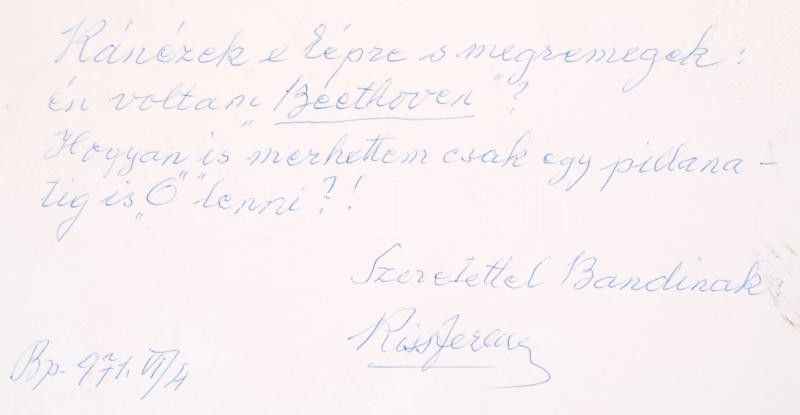 Ránézek e képre s megremegek:
én voltam „Beethoven"?
Hogyan is merhettem csak egy pillana-
tig is „Ő" lenni?!
Szeretettel Bandinak:
Kiss Ferenc
Bp. 971. VI/4
darabanth